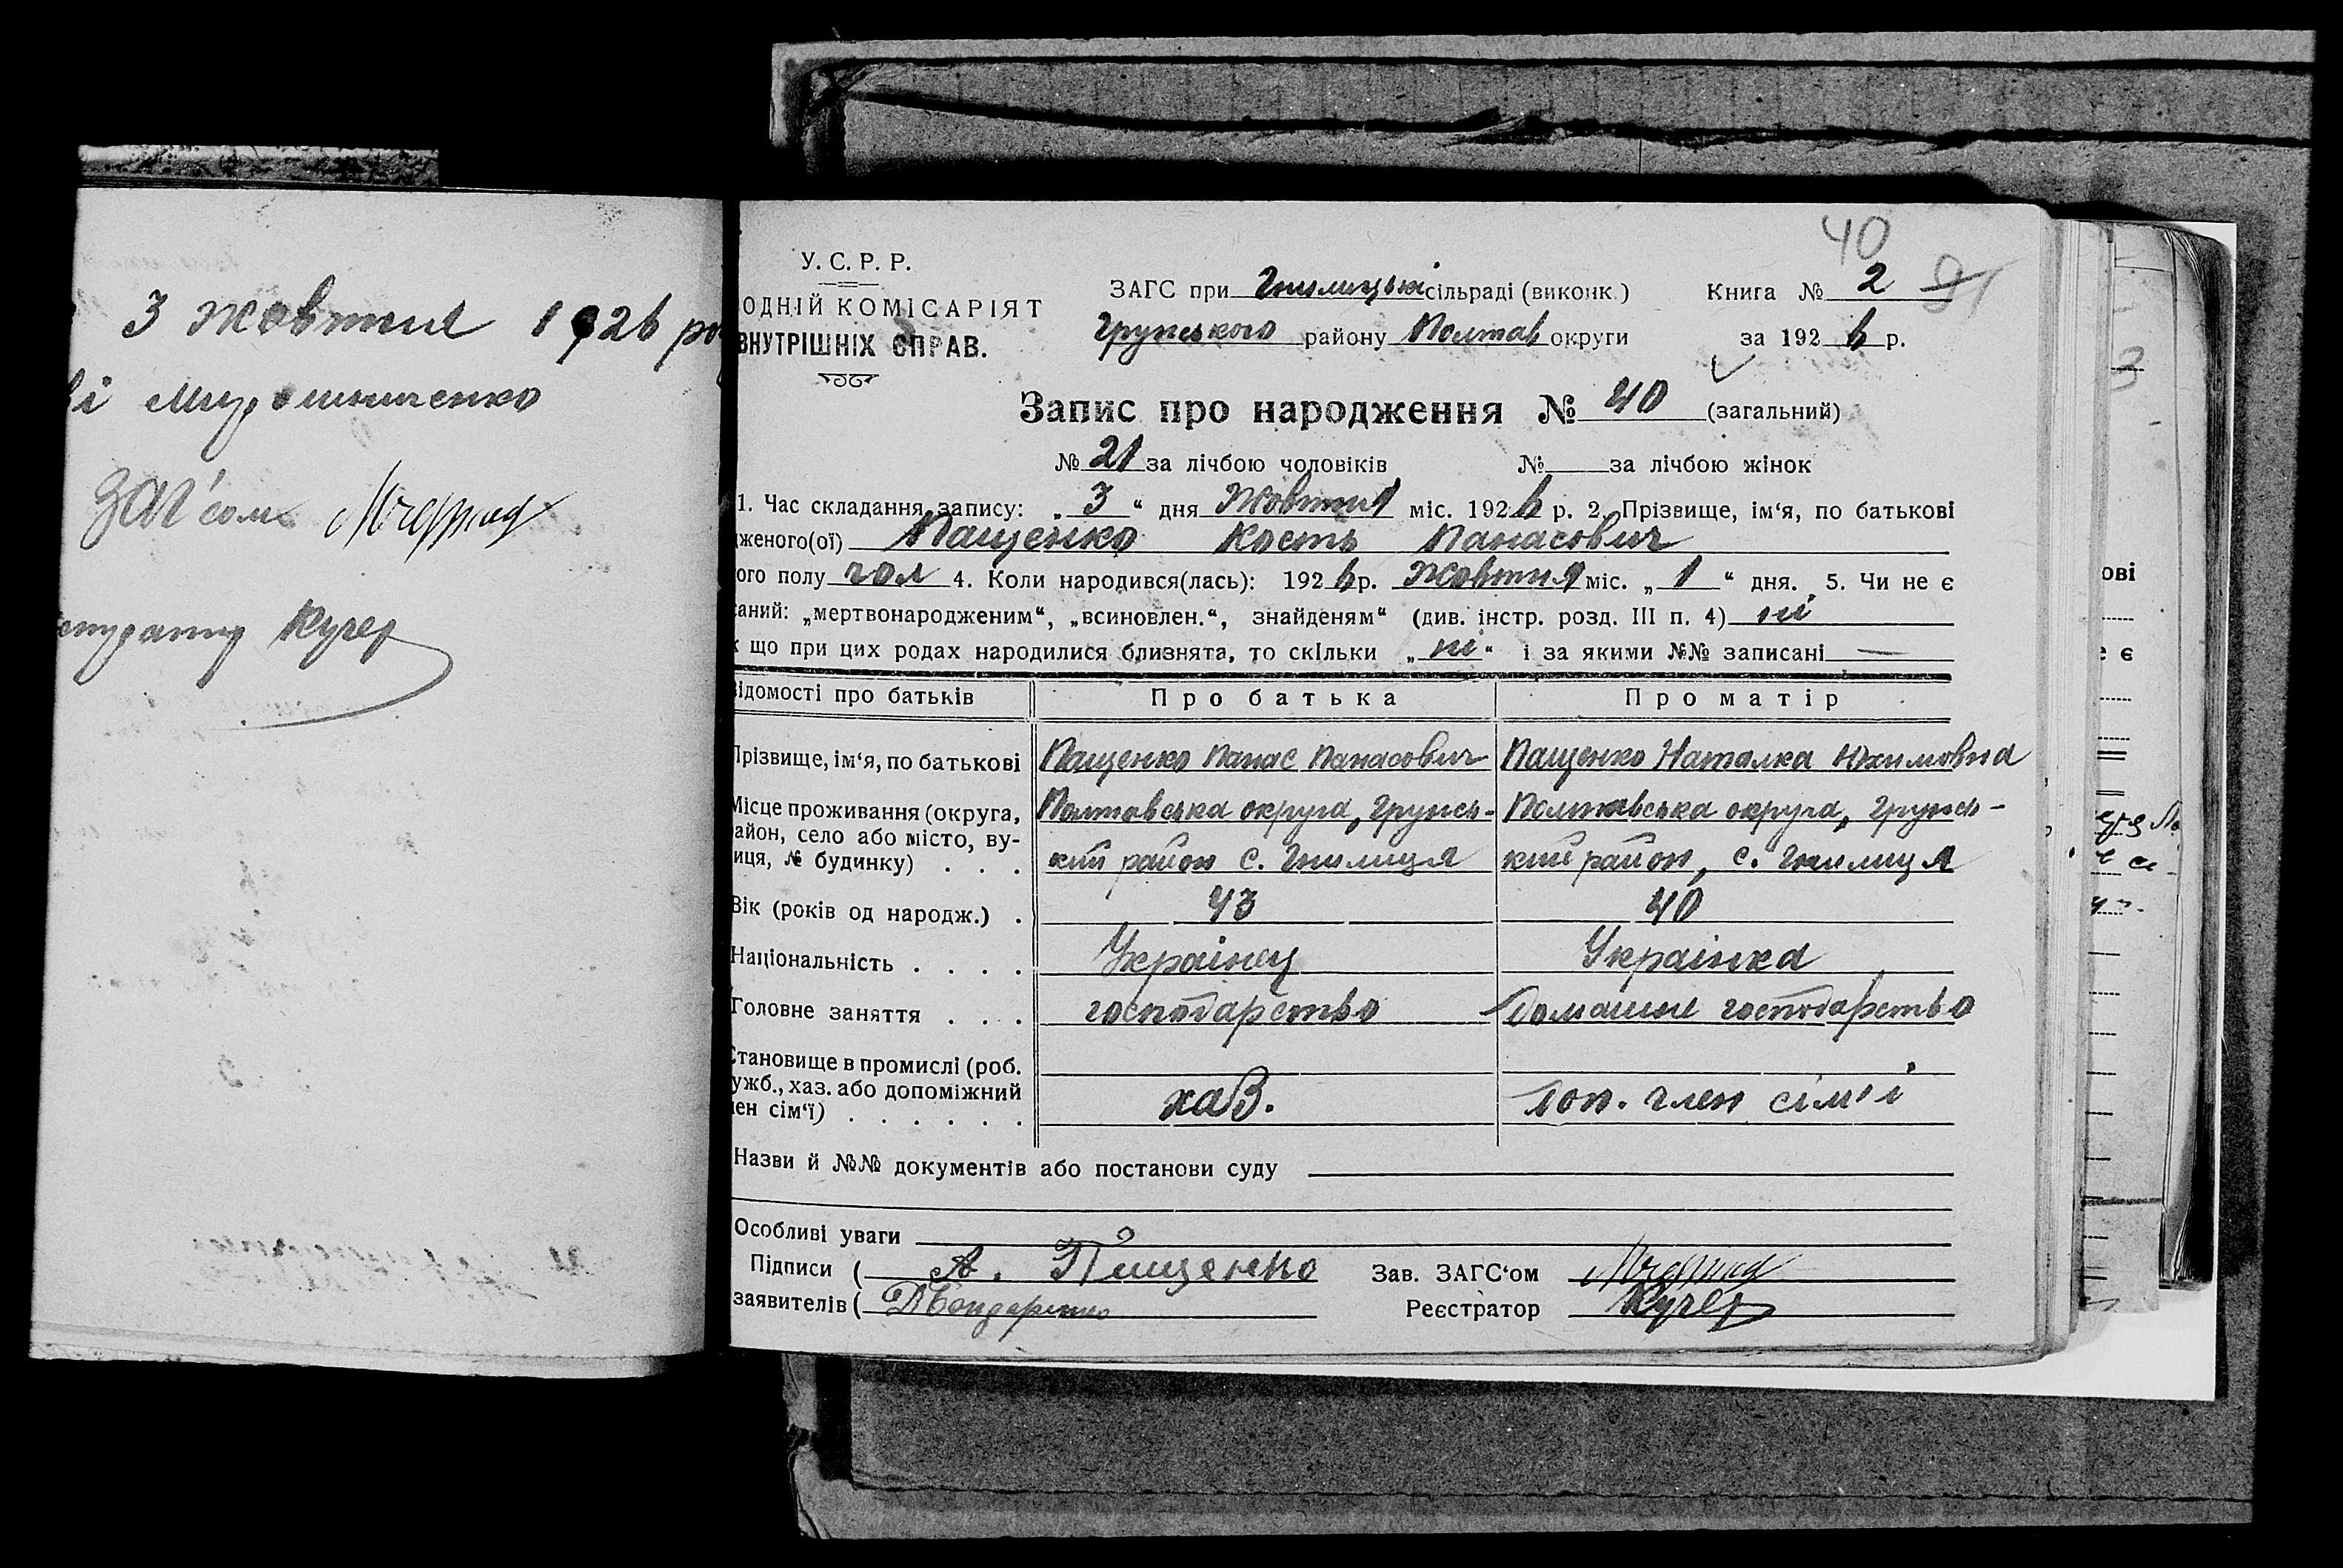 3 Жовтня 1926 ро
ві Мирошниченко
ЗАГ'сом
Кучер
40
У. С. Р. Р.
ОДНІЙ КОМІСАРІЯТ
ВНУТРІШНІХ СПРАВ.
ЗАГС при Гнилицькі сільраді (виконк.)
Грунського району Полтав округи
Книга № 2 91
за 1926 р.
Запис про народження № 40 (загальний)
№ 21 за лічбою чоловіків № за лічбою жінок
1. Час складання запису: „ 3 “ дня Жовтня міс. 1926 р. 2. Прізвище, ім‘я, по батькові
дженого(ої) Пащенко Кость Панасович
ого полу чол 4. Коли народився(лась): 1926 р. Жовтня міс. „ 1 “ дня. 5. Чи не є
саний: „мертвонародженим“, „всиновлен.“, знайденям“ (див. інстр. розд. III п. 4) ні
к що при цих родах народилися близнята, то скільки „ ні “ і за якими №№ записані —
відомості про батьків Про батька Про матір
Прізвище, ім‘я, по батькові Пащенко Панас Панасович Пащенко Наталка Юхимовна
Місце проживання (округа, Полтавська округа, Грунсь- Полтавська округа, Грунсь-
айон, село або місто, ву-
иця, № будинку) . . . кий район с. Гнилиця кий район, с. Гнилиця
Вік (років од народж.) . 43 40
Національність . . . . Украінец Украінка
Головне заняття . . . господарство домашне господарство
Становище в промислі (роб.
ужб., хаз. або допоміжний хаз. доп. член сім'і
лен сім‘ї) . . . . . .
Назви й №№ документів або постанови суду
Особливі уваги
Підписи ( А. Пащенко Зав. ЗАГС‘ом
заявителів ( Бондаренко Реєстратор Кучер
ові
е є